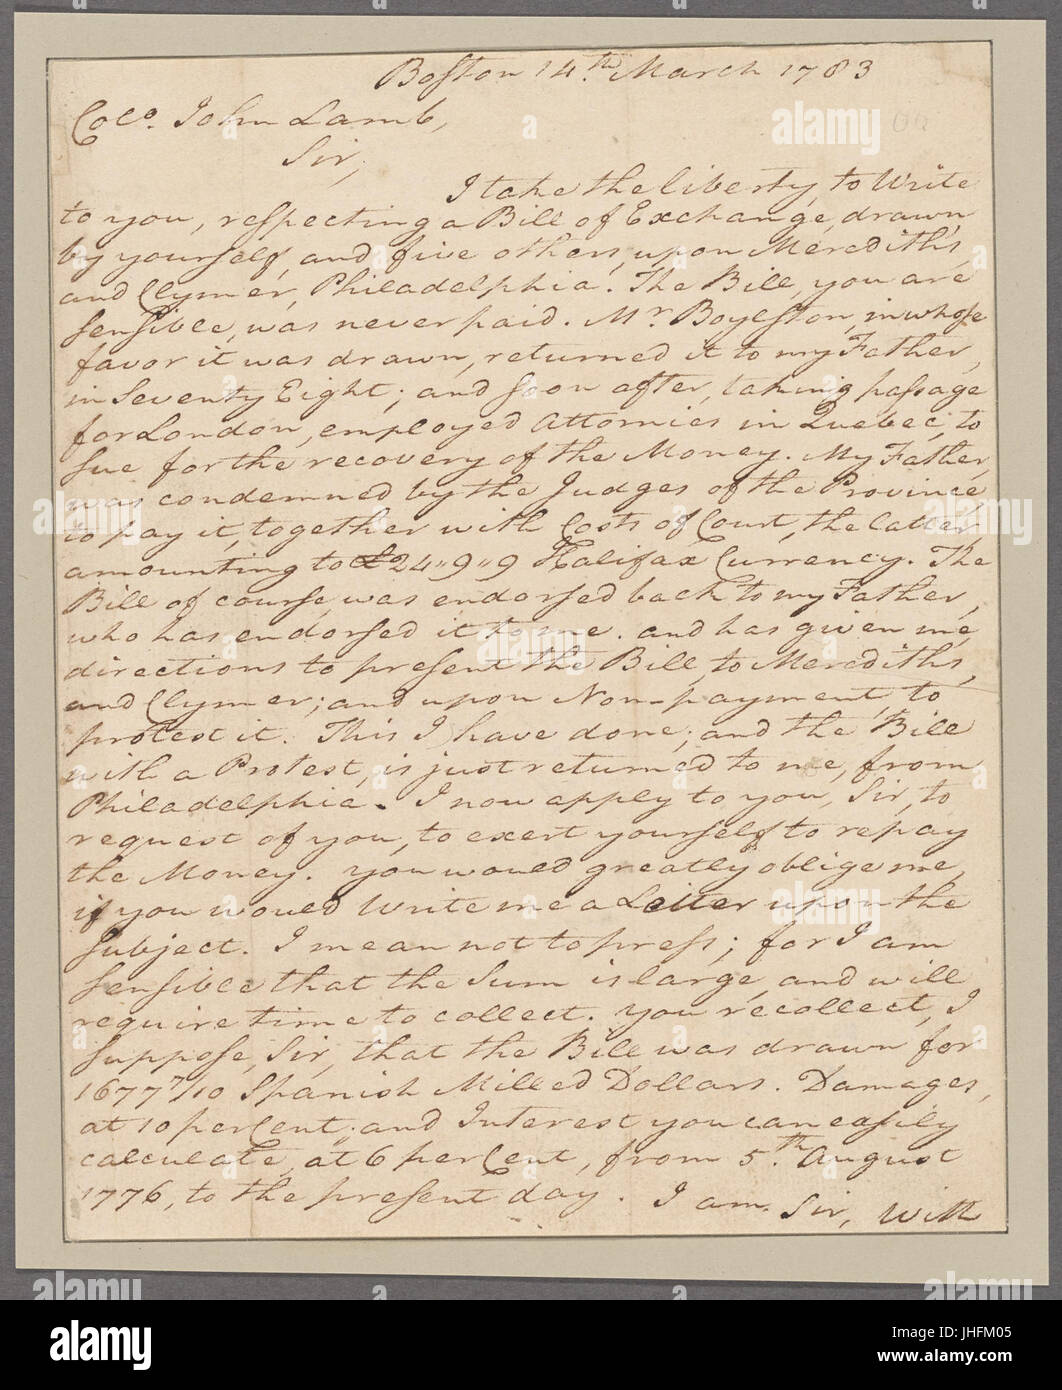 Boston 14th. March 1783
Colo. John Lamb,
Sir,
I take the liberty, to Write
to you, respecting a Bill of Exchange, drawn
by yourself, and five others, upon Merediths,
and Clymer, Philadelphia. The Bill, you are
sensible, was never paid. Mr. Boylston, in whose
favor it was drawn, returned it to my Father,
in Seventy Eight; and soon after, taking passage
for London, employed Attornies in Quebec, to
sue for the recovery of the Money. My Father,
was condemned by the Judges of the Province,
to pay it, together with Costs of Court, the latter,
amounting to £24"9"9 Halifax Currency. The
Bill of course was endorsed back to my Father,
who has endorsed it to me. and has given me,
directions to present the Bill, to Merediths,
and Clymer; and upon Non-payment, to
protest it. This I have done; and the Bill
with a Protest, is just returned to me, from
Philadelphia. I now apply to you, Sir, to
request of you, to exert yourself to repay
the Money. you would greatly oblige me,
if you would Write me a Letter upon the
subject. I mean not to press; for I am
sensible that the Sum is large, and will
require time to collect. you recollect, I
suppose, Sir, that the Bill was drawn for
1677 7/10 Spanish Milled Dollars. Damages,
at 10 per Cent; and Interest you can easily
calculate, at 6 per Cent, from 5th. August
1776, to the present day. I am. Sir, With
alamy
Image ID: JHFM05
www.alamy.com